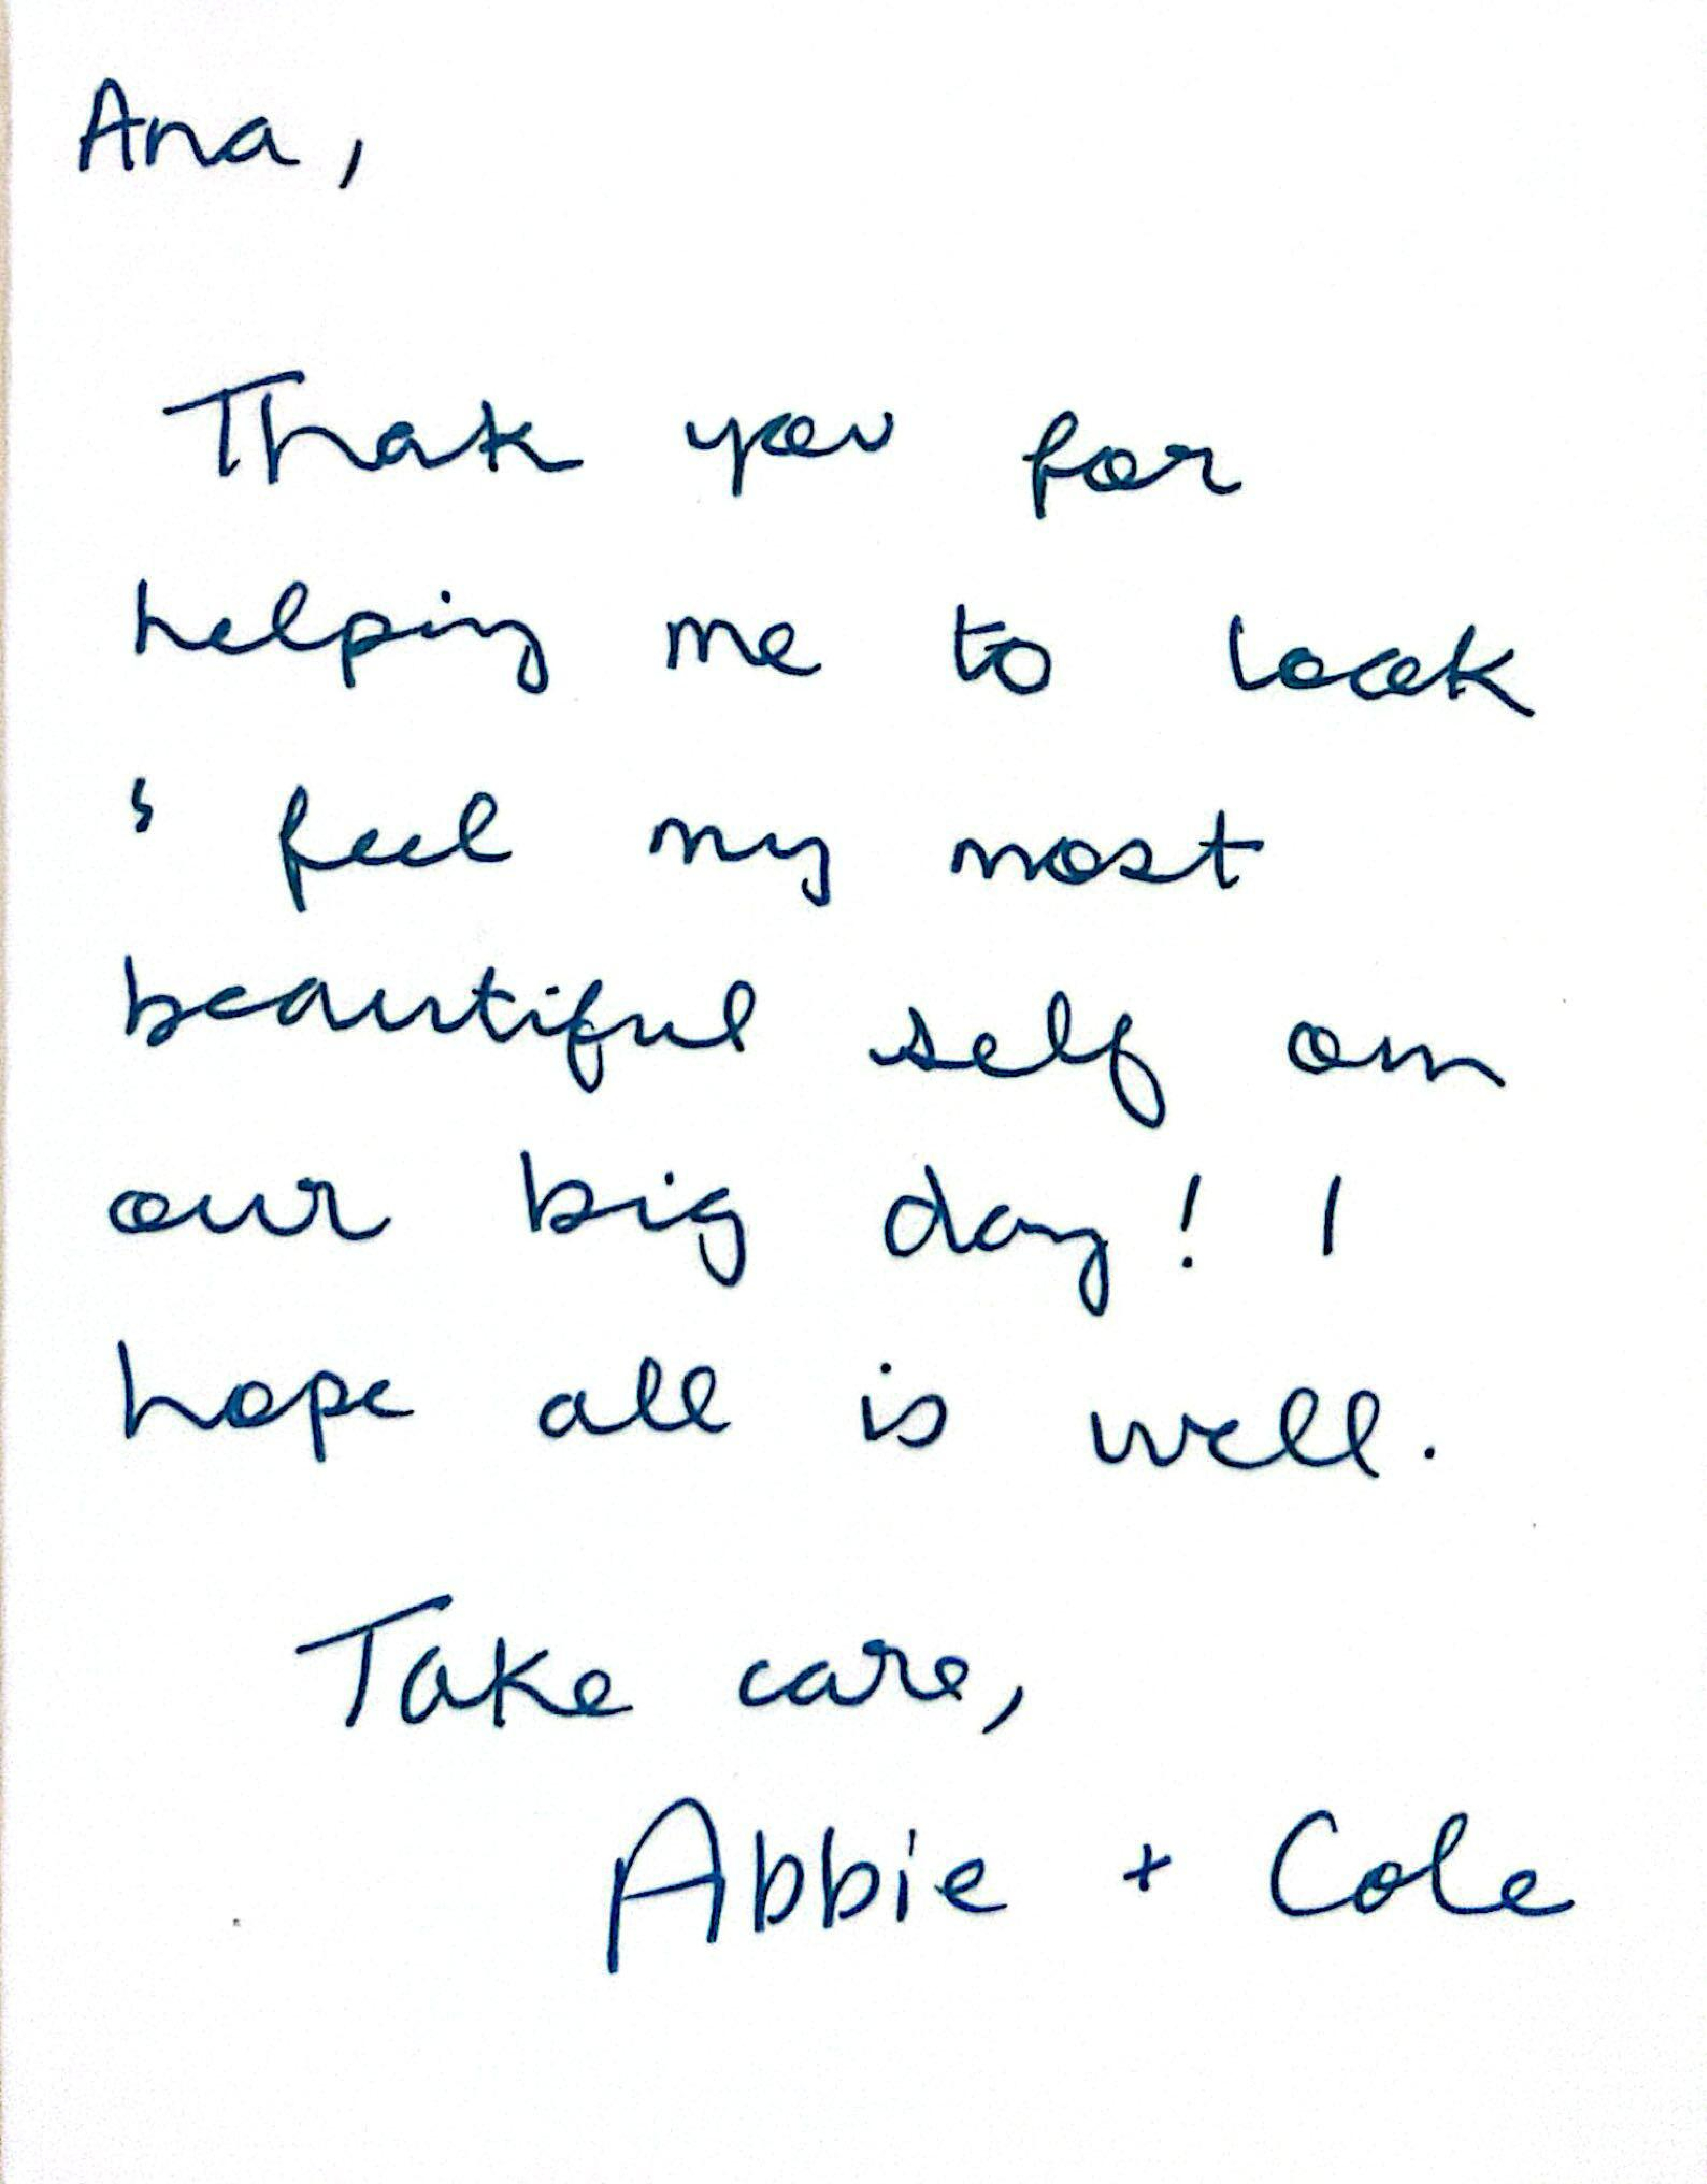 Ana,
Thank you for
helping me to look
& feel my most
beautiful self on
our big day! I
hope all is well.
Take care,
Abbie + Cole